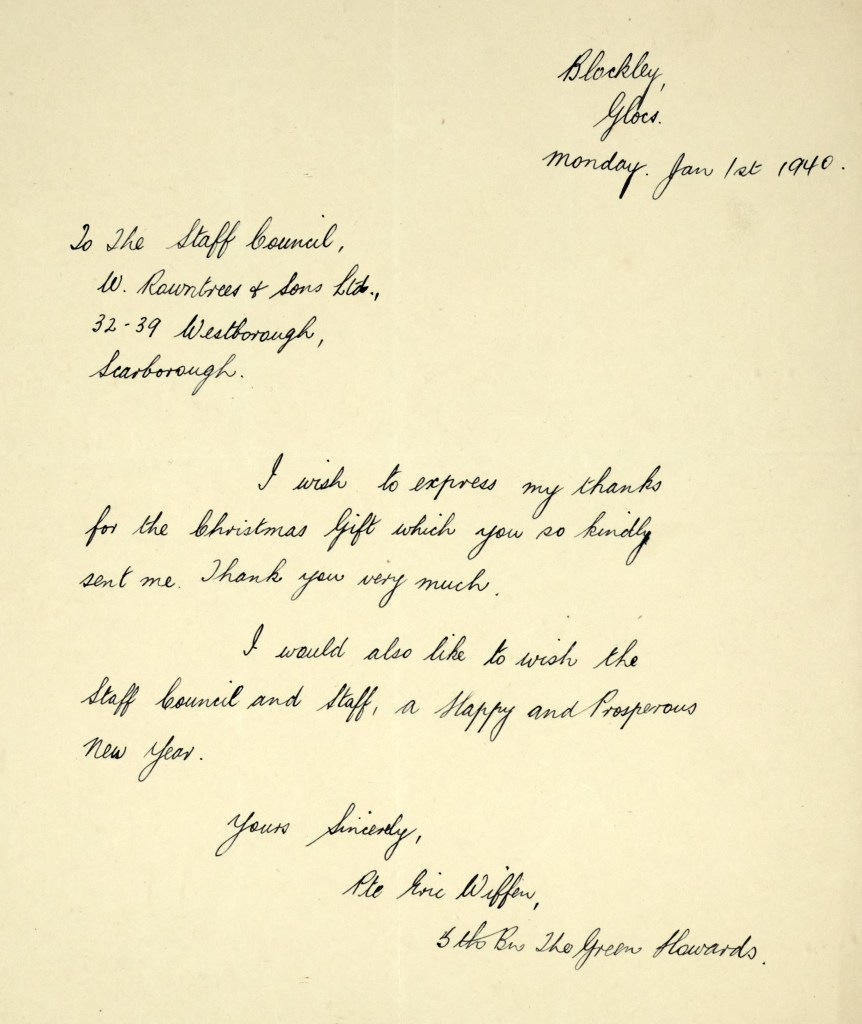 Blockley,
Glocs.
Monday. Jan 1st 1940.
To The Staff Council,
W. Rowntrees & Sons Ltd.,
32-39 Westborough,
Scarborough.
I wish to express my thanks
for the Christmas Gift which you so kindly
sent me. Thank you very much.
I would also like to wish the
Staff Council and Staff, a Happy and Prosperous
New Year.
Yours Sincerely,
Pte Eric Wiffen,
5th Bn The Green Howards.